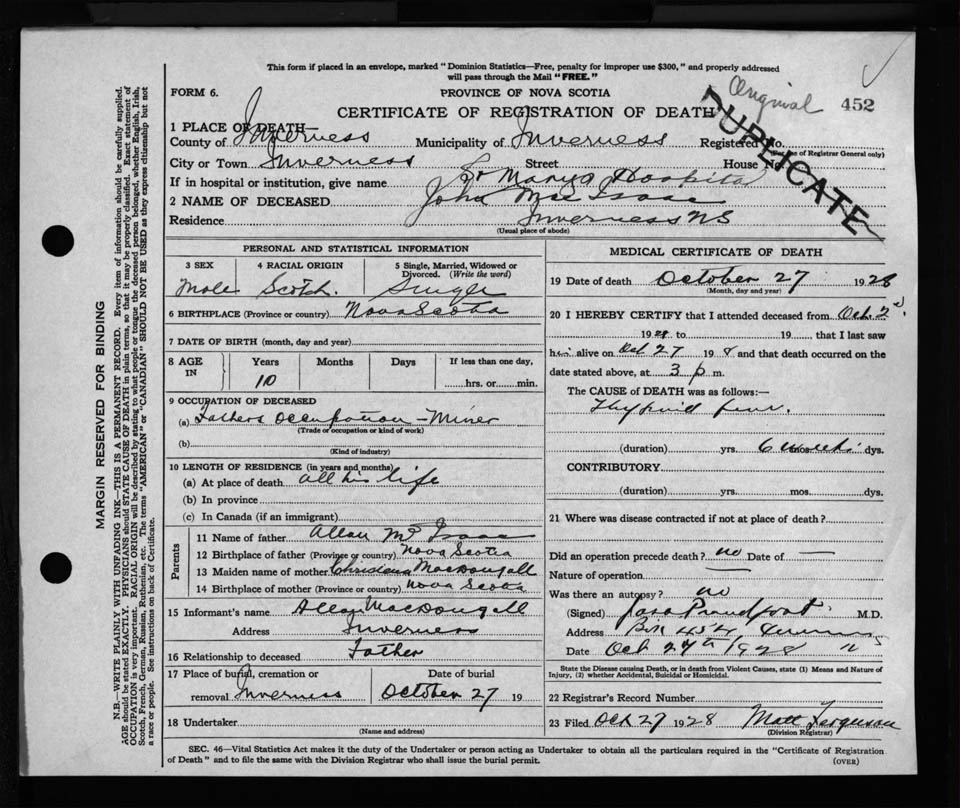 This form if placed in an envelope, marked "Dominion Statistics—Free, penalty for improper use $300," and properly addressed
will pass through the Mail "FREE."
FORM 6.
PROVINCE OF NOVA SCOTIA
Original
452
CERTIFICATE OF REGISTRATION OF DEATH
DUPLICATE
1 PLACE OF DEATH—
County of Inverness Municipality of Inverness Registered No.
(For use of Registrar General only)
City or Town Inverness Street House No.
If in hospital or institution, give name St Marys Hospital
2 NAME OF DECEASED John Mac Isaac
Residence Inverness NS
(Usual place of abode)
PERSONAL AND STATISTICAL INFORMATION
3 SEX 4 RACIAL ORIGIN 5 Single, Married, Widowed or
Divorced. (Write the word)
Male Scotch. Single
6 BIRTHPLACE (Province or country) Nova Scotia
7 DATE OF BIRTH (month, day and year)
8 AGE IN Years Months Days If less than one day,
10 hrs. or min.
9 OCCUPATION OF DECEASED
(a) Fathers Occupation—Miner
(Trade or occupation or kind of work)
(b)
(Kind of industry)
10 LENGTH OF RESIDENCE (in years and months)
(a) At place of death all his life
(b) In province
(c) In Canada (if an immigrant)
Parents
11 Name of father Allan Mc Isaac
12 Birthplace of father (Province or country) Nova Scotia
13 Maiden name of mother MacDougall
14 Birthplace of mother (Province or country) Nova Scotia
15 Informant's name Allan MacDougall
Address Inverness
16 Relationship to deceased Father
17 Place of burial, cremation or Date of burial
removal Inverness October 27 19
18 Undertaker
(Name and address)
MEDICAL CERTIFICATE OF DEATH
19 Date of death October 27 1928
(Month, day and year)
20 I HEREBY CERTIFY that I attended deceased from Oct. 2
1928 to 19 , that I last saw
him alive on Oct 27 1928 and that death occurred on the
date stated above, at 3 p m.
The CAUSE of DEATH was as follows:
Thyphoid fever.
(duration) yrs. 6 weeks. mos. dys.
CONTRIBUTORY
(duration) yrs. mos. dys.
21 Where was disease contracted if not at place of death?
Did an operation precede death? no Date of —
Nature of operation —
Was there an autopsy? no
(Signed) Proudfoot M.D.
Address Box 454 Inverness NS
Date Oct 27th 1928
State the Disease causing Death, or in death from Violent Causes, state (1) Means and Nature of
Injury, (2) whether Accidental, Suicidal or Homicidal.
22 Registrar's Record Number
23 Filed Oct 27 1928 Matt Ferguson
(Division Registrar)
SEC. 46—Vital Statistics Act makes it the duty of the Undertaker or person acting as Undertaker to obtain all the particulars required in the "Certificate of Registration
of Death" and to file the same with the Division Registrar who shall issue the burial permit.
(OVER)
MARGIN RESERVED FOR BINDING
N.B.—WRITE PLAINLY WITH UNFADING INK—THIS IS A PERMANENT RECORD. Every item of information should be carefully supplied.
AGE should be stated EXACTLY. PHYSICIANS should STATE CAUSE OF DEATH in plain terms, so that it may be properly classified. Exact statement of
OCCUPATION is very important. RACIAL ORIGIN will be described by stating to what people or tongue the deceased person belonged, whether English, Irish,
Scotch, French, German, Russian, Ruthenian, etc. The terms "AMERICAN" or "CANADIAN" SHOULD NOT BE USED as they express citizenship but not
a race or people. See instructions on back of Certificate.